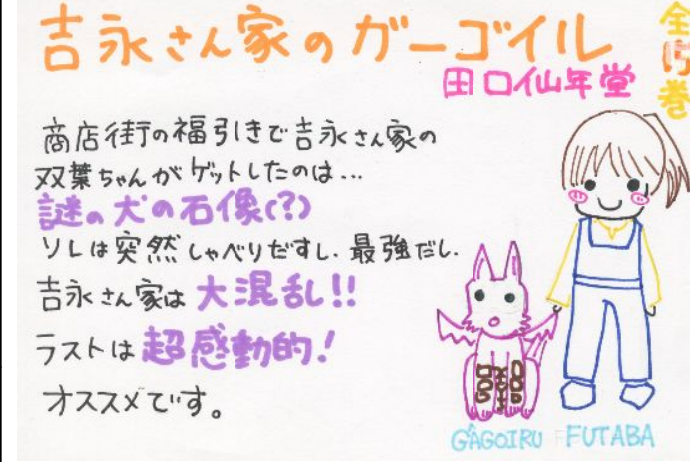 吉永さん家のガーゴイル
全15巻
田口仙年堂
商店街の福引きで吉永さん家の
双葉ちゃんがゲットしたのは…
謎の犬の石像(?)
ソレは突然しゃべりだすし、最強だし、
吉永さん家は大混乱!!
ラストは超感動的!
オススメです。
GÂGOIRU FUTABA